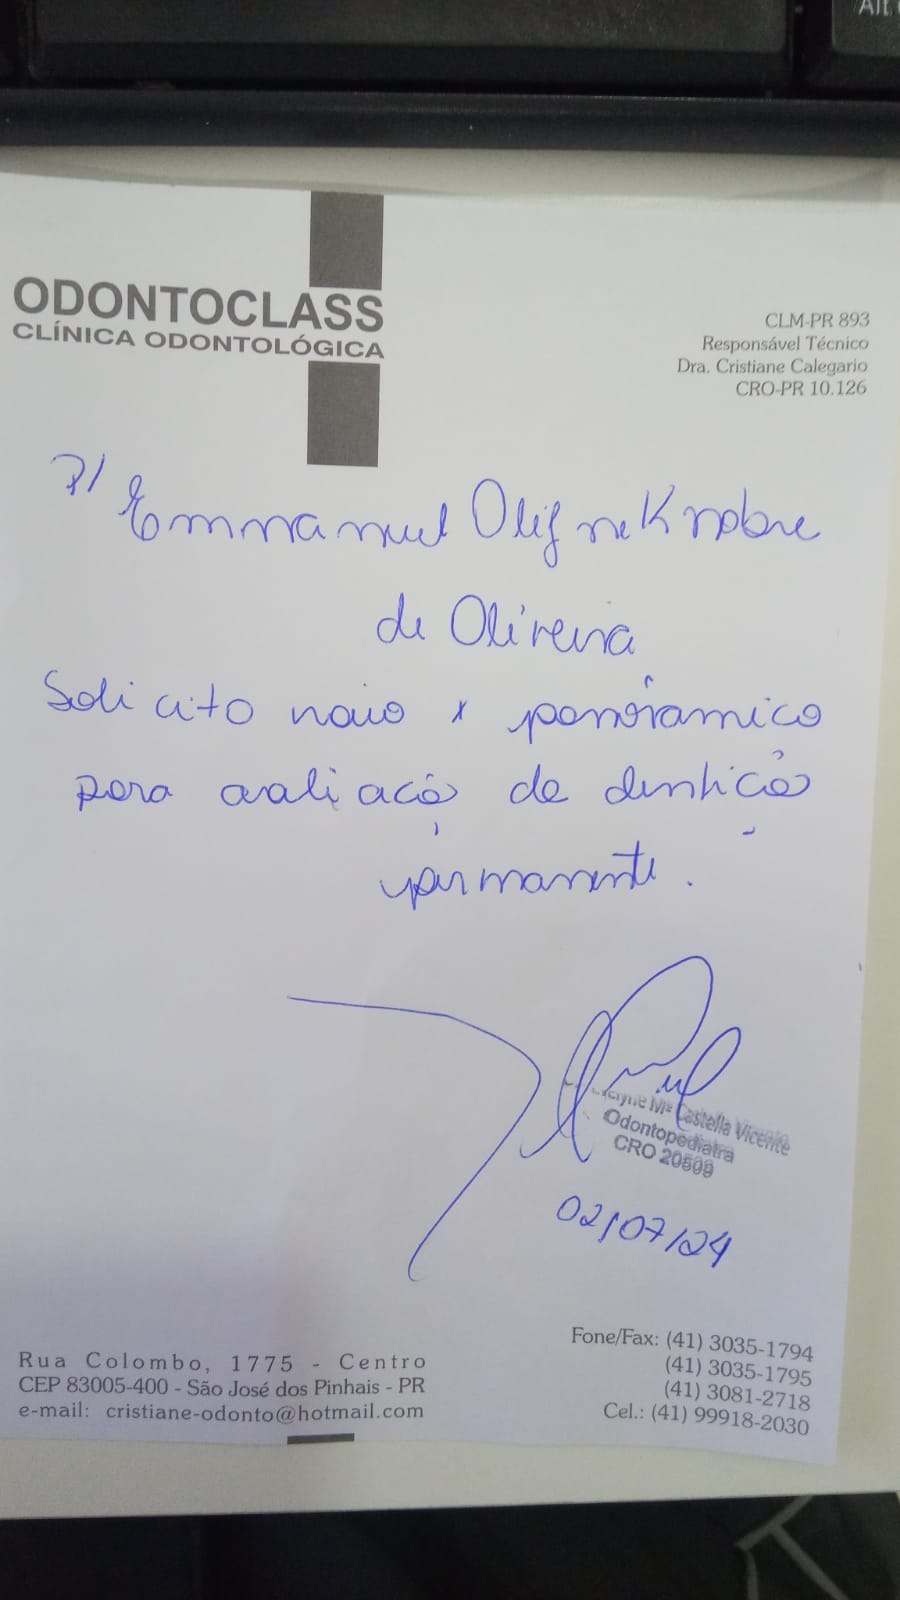 Alt
ODONTOCLASS
CLÍNICA ODONTOLÓGICA
CLM-PR 893
Responsável Técnico
Dra. Cristiane Calegario
CRO-PR 10.126
P/ Emmanuel
de Oliveira
Solicito raio x panorâmico
para avaliação de dentição
permanente.
Mª Castella Vicente
Odontopediatra
CRO 20509
02/07/24
Rua Colombo, 1775 - Centro
CEP 83005-400 - São José dos Pinhais - PR
e-mail: cristiane-odonto@hotmail.com
Fone/Fax: (41) 3035-1794
(41) 3035-1795
(41) 3081-2718
Cel.: (41) 99918-2030